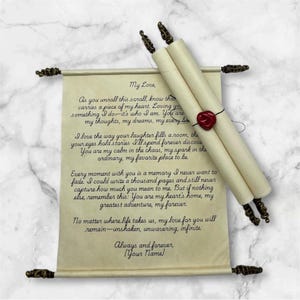 My Love,
As you unroll this scroll, know that
carries a piece of my heart. Loving you
something I do—it's who I am. You are
my thoughts, my dreams, my every
I love the way your laughter fills a room, the
your eyes hold stories I'll spend forever discover
You are my calm in the chaos, my spark in the
ordinary, my favorite place to be.
Every moment with you is a memory I never want to
fade. I could write a thousand pages and still never
capture how much you mean to me. But if nothing
else, remember this: You are my heart's home, my
greatest adventure, my forever.
No matter where life takes us, my love for you will
remain—unshaken, unwavering, infinite.
Always and forever,
[Your Name]